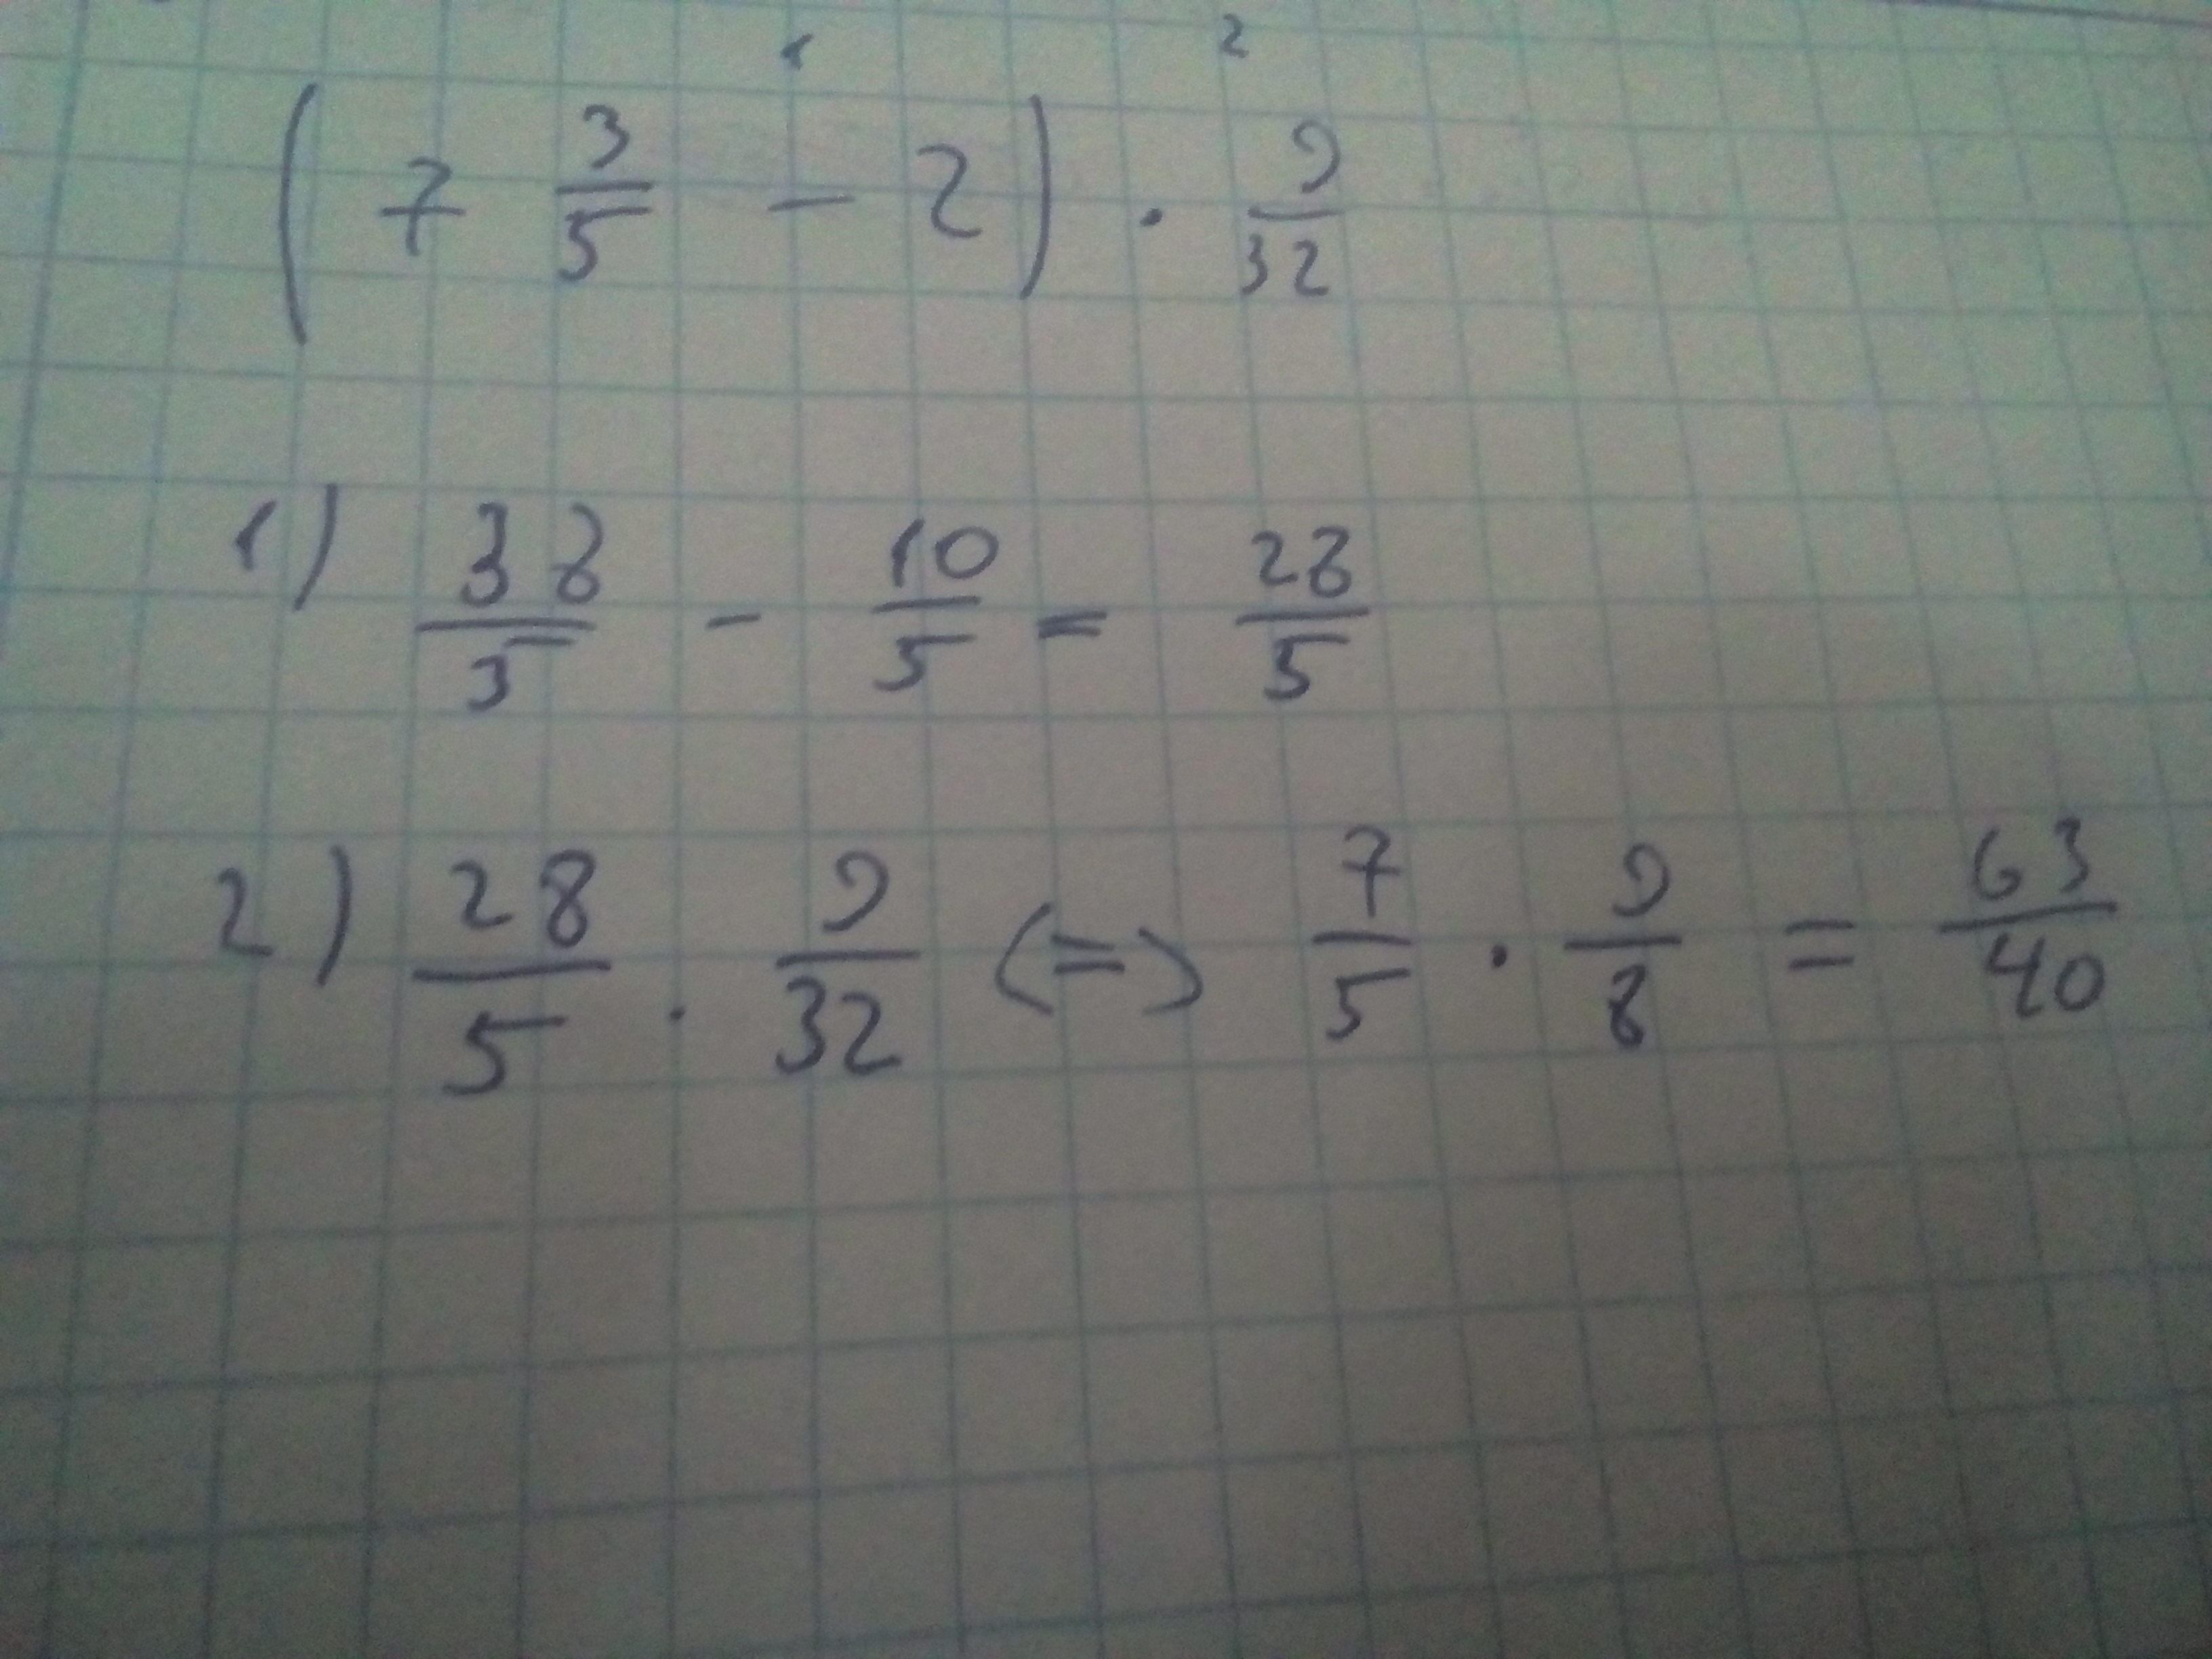 1 2
(7 3/5 - 2) · 9/32
1) 38/5 - 10/5 = 28/5
2) 28/5 · 9/32 (=) 7/5 · 9/8 = 63/40